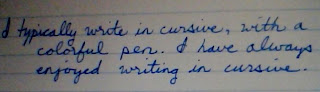 I typically write in cursive, with a
colorful pen. I have always
enjoyed writing in cursive.